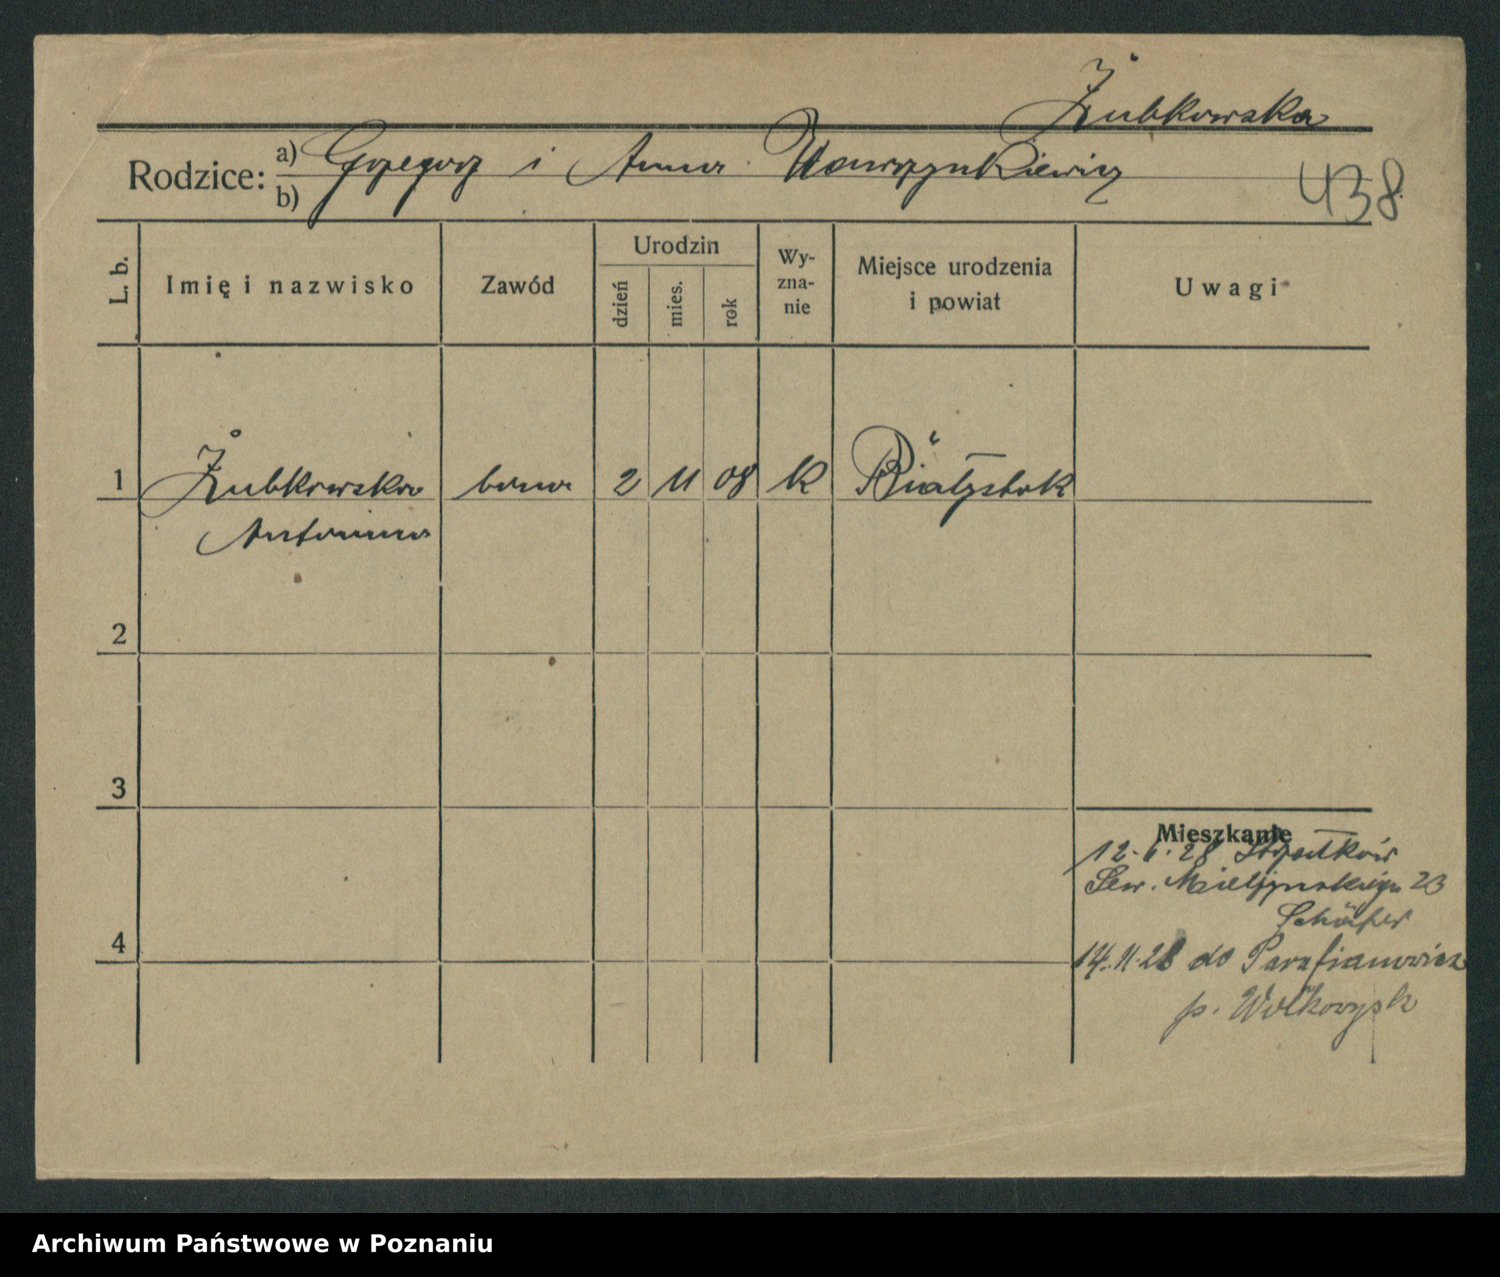 Żubkowska
Rodzice: a) Grzegorz i Anna Wawrzynkiewicz
b)
438
L. b.
Imię i nazwisko
Zawód
Urodzin
dzień
mies.
rok
Wy-
zna-
nie
Miejsce urodzenia
i powiat
Uwagi
1 Żubkowska bona 2 11 08 k Białystok
Antonina
2
3
4
Mieszkanie
12. 6. 28
Sew. Mielżyńskiego 23
Schäfer
14. 11. 28 do Parafianowicz
p. Wołkowysk
Archiwum Państwowe w Poznaniu